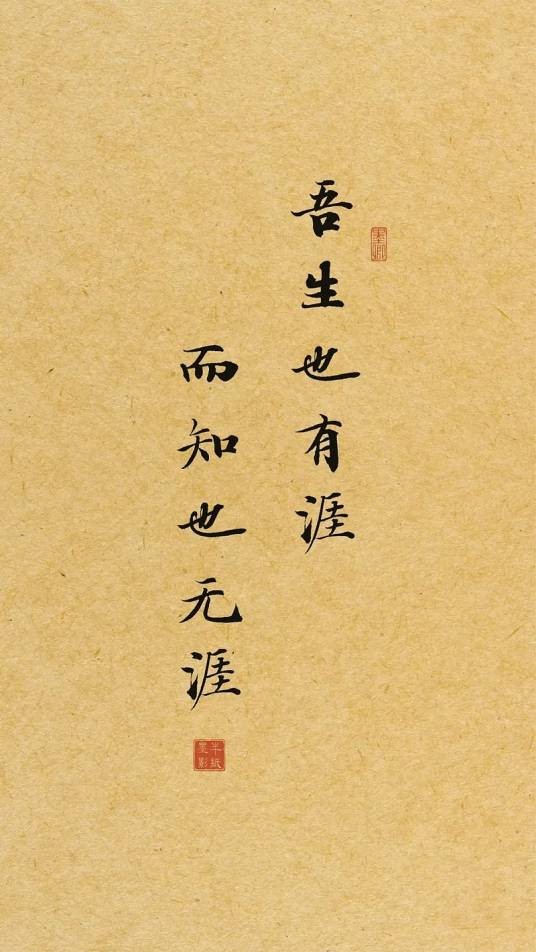 吾生也有涯
而知也无涯
半纸
墨影